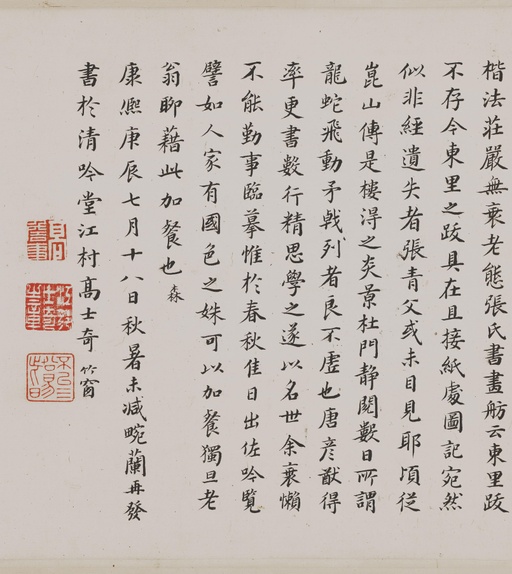 楷法莊嚴無衰老態張氏書畫舫云東里跋
不存今東里之跋具在且接紙處圖記宛然
似非經遺失者張青父或未目見耶頃從
崑山傳是樓淂之炎景杜門静閱數日所謂
龍蛇飛動矛戟列者良不虛也唐彦猷得
率更書數行精思學之遂以名世余衰懶
不能勤事臨摹惟於春秋佳日出佐吟覽
譬如人家有國色之姝可以加餐獨旦老
翁聊藉此加餐也 森
康熈庚辰七月十八日秋暑未减畹蘭再發
書於清吟堂江村髙士奇 竹窗